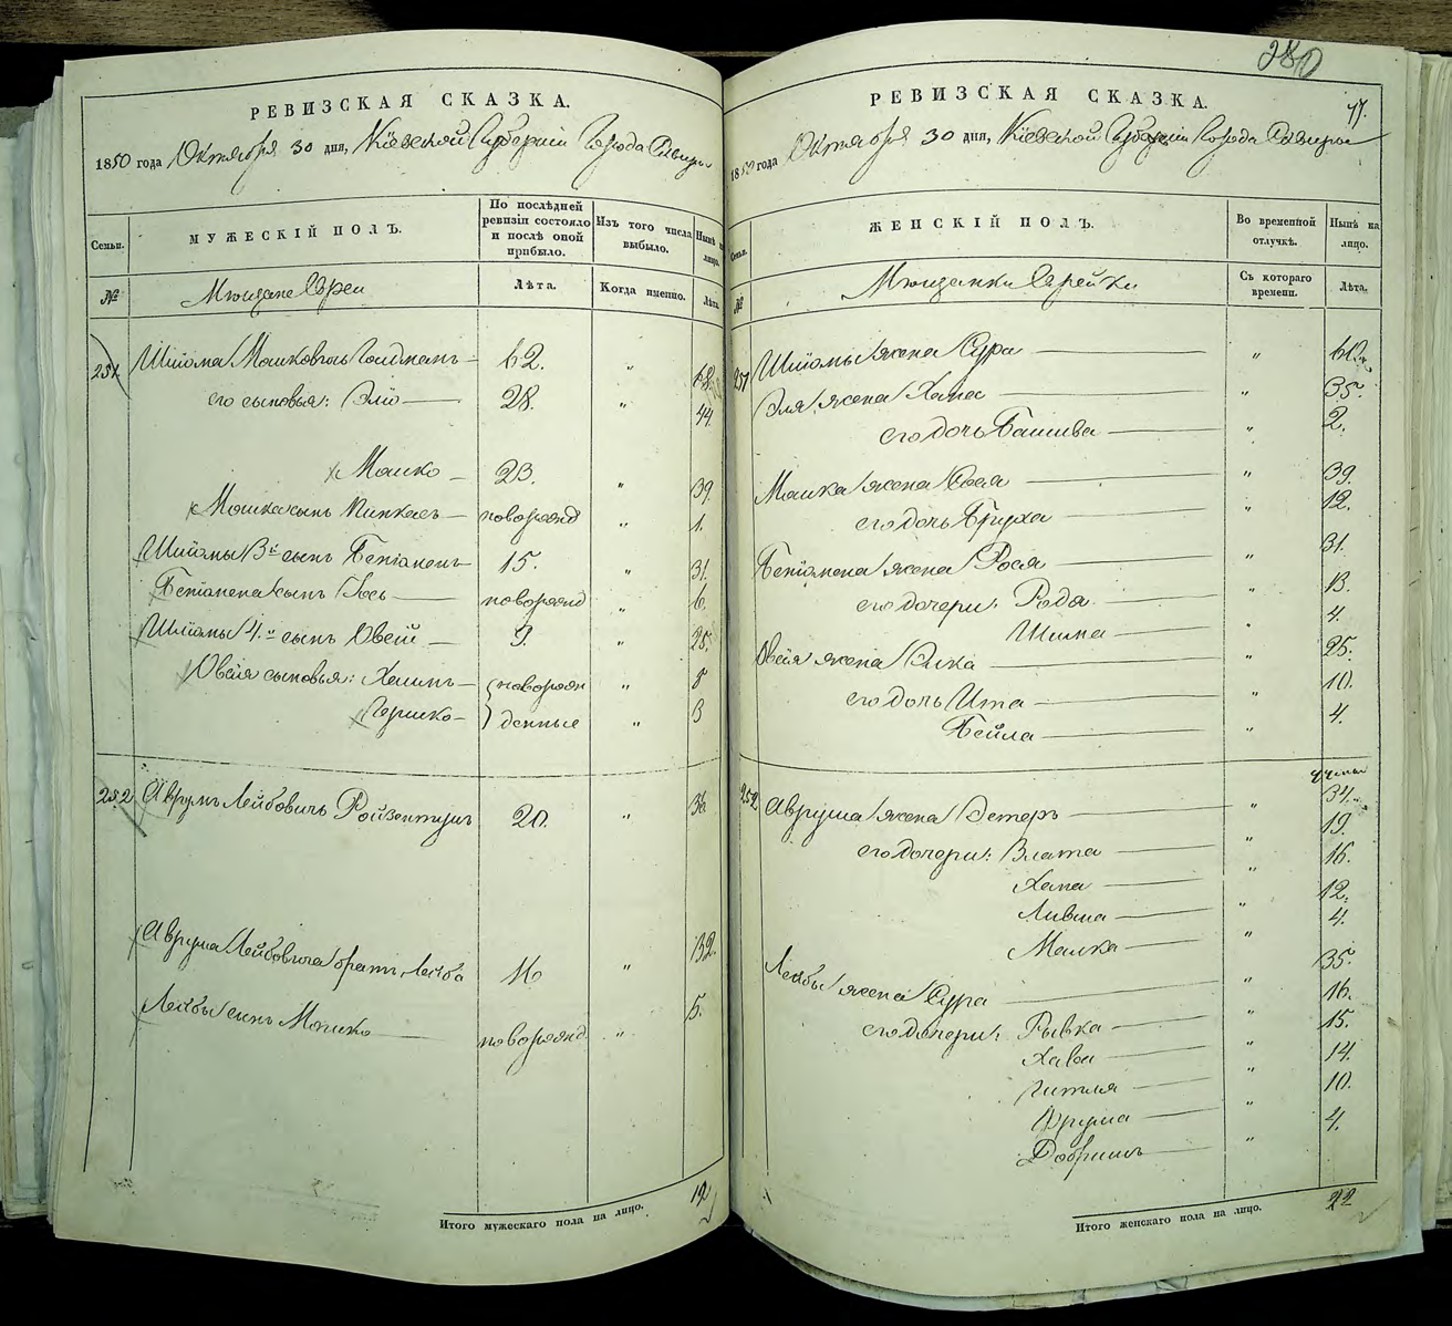 280
РЕВИЗСКАЯ СКАЗКА.
1850 года Октября 30 дня, Кіевской Губерніи Города Сквиры
Семьи.
МУЖЕСКІЙ ПОЛЪ.
По послѣдней ревизіи состояло и послѣ оной прибыло.
Изъ того числа выбыло.
Нынѣ на лицо.
№
Мѣщане Евреи
Лѣта.
Когда именно.
Лѣта.
251 Шліома Мошковичь 62. "
его сыновья: Элio 28. " 44
Мошко 23. " 39.
Мошка сынъ Пинхасъ новорожд " 1.
Шліомы 3й сынъ Бенiаменъ 15. " 31.
Бенiамена сынъ новорожд " 6.
Шліомы 4.й сынъ Овсiй 9. " 25.
Овсiя сыновья: Хаимъ новорож " 8
Гершко денные " 3
252 Аврумъ Лейбовичь Ройзентулъ 20. " 36
Аврума Лейбовича братъ Лейба 16 " 32.
Лейбы сынъ Мошко новорожд. " 5.
Итого мужескаго пола на лицо. 12
77.
РЕВИЗСКАЯ СКАЗКА.
1850 года Октября 30 дня, Кіевской Губерніи Города Сквиры
Семьи.
ЖЕНСКІЙ ПОЛЪ.
Во временной отлучкѣ.
Нынѣ на лицо.
№
Мѣщанки Еврейки
Съ котораго времени.
Лѣта.
251 Шліомы жена Сура "
Эля жена Хана " 35.
его дочь Башива " 2.
Мошка жена " 39.
его дочь Бруха " 12.
Бенiамена жена Рося " 31.
его дочери: Рода " 13.
Шима " 4.
Овсiя жена " 25.
его дочь Ита " 10.
Бейла " 4.
252 Аврума жена Эстеръ " 34.
его дочери: Злата " 19.
Хана " 16.
Ливша " 12.
Малка " 4.
Лейбы жена Сура " 35.
его дочери: Рывка " 16.
Хава " 15.
Гитля " 14.
Фрума " 10.
Добришъ " 4.
Итого женскаго пола на лицо. 22